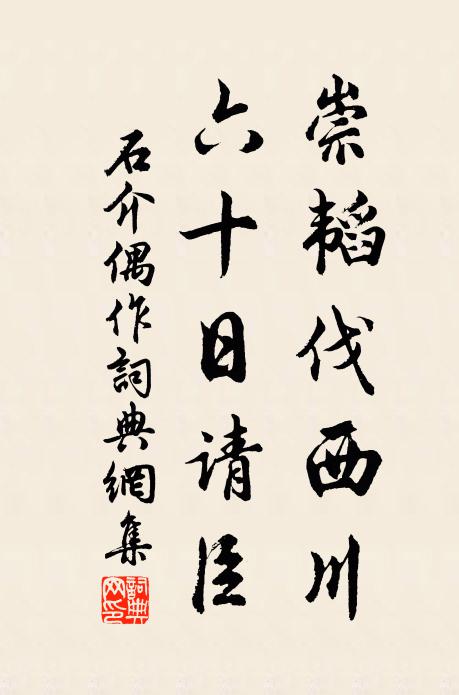 崇韬伐西川
六十日请臣
石介偶作詞典網集
詞典网印